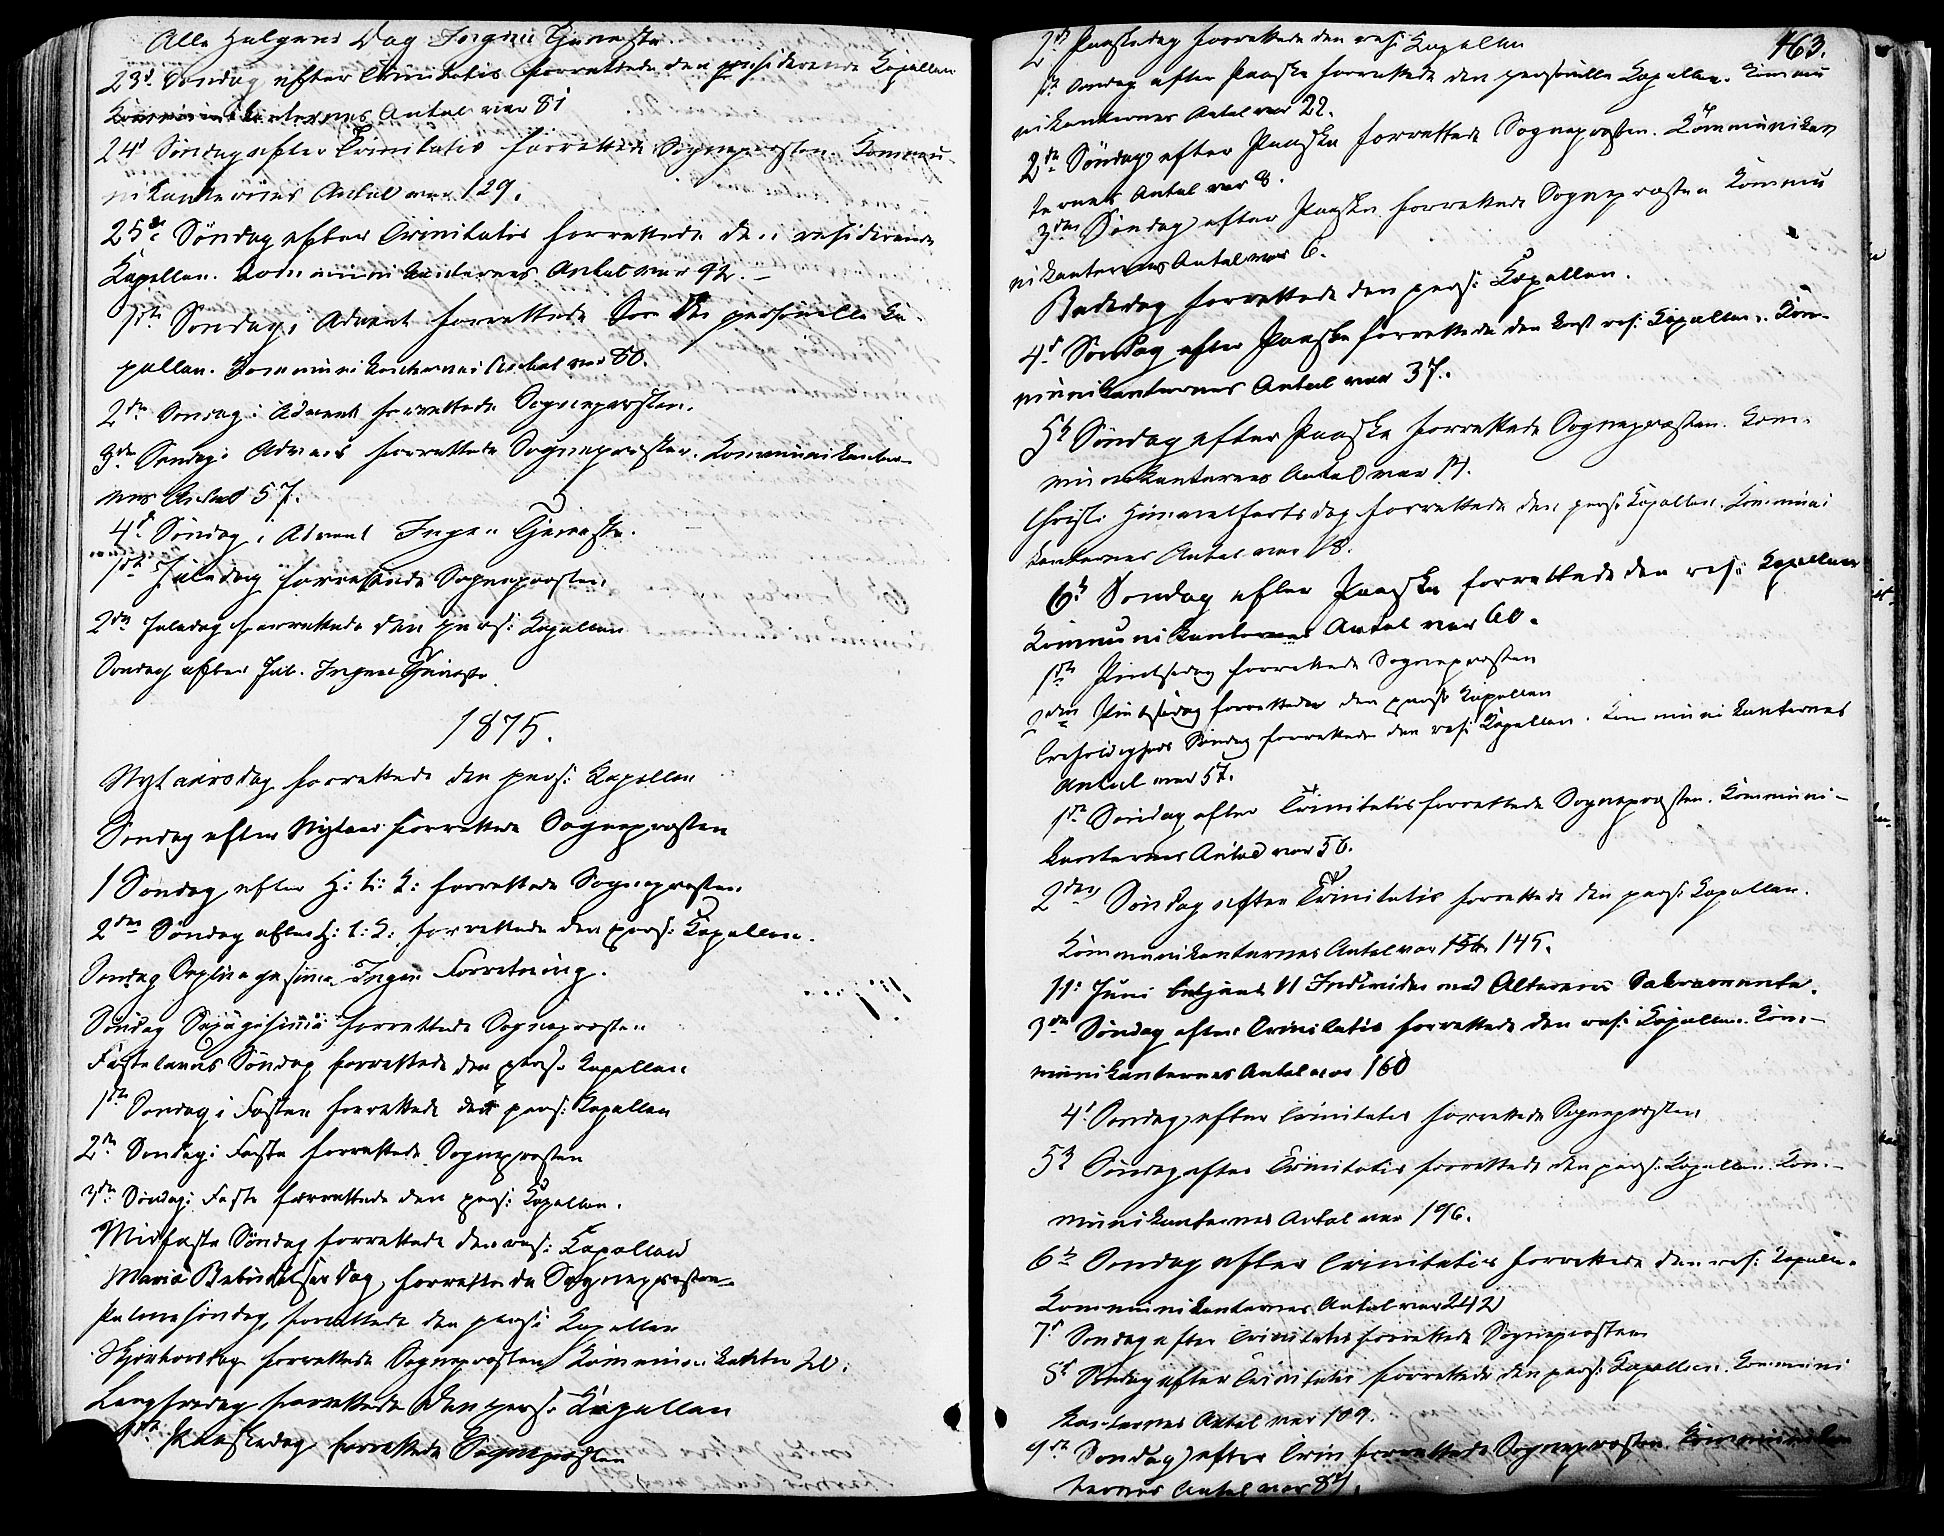 Alle Helgens Dag Ingen Tjeneste.
23d Søndag efter Trinitatis forrettede den residerende Kapellan
Kommunikanternes Antal var 81
24d Søndag efter Trinitatis forrettede Sognepræsten. Kommu-
nikanternes Antal var 129.
25de Søndag efter Trinitatis forrettede den residerende
Kapellan. Kommunikanternes Antal var 92.
1ste Søndag i Advent forrettede den personelle Ka-
pellan. Kommunikanternes Antal var 80.
2den Søndag i Advent forrettede Sognepræsten.
3die Søndag i Advent forrettede Sognepræsten. Kommunikanter-
nes Antal 57.
4d Søndag i Advent Ingen Tjeneste.
1ste Juledag forrettede Sognepræsten.
2den Juledag forrettede den pers: Kapellan
Søndag efter Jul. Ingen Tjeneste.
1875.
Nytaarsdag forrettede den pers: Kapellan
Søndag efter Nytaar forrettede Sognepræsten
1 Søndag efter H: t: K: forrettede Sognepræsten.
2den Søndag efter H: t: K: forrettede den pers: Kapellan.
Søndag Septuagesima Ingen Forretning.
Søndag Sexagesima forrettede Sognepræsten
Fastelavns Søndag forrettede den pers: Kapellan
1ste Søndag i Fasten forrettede den pers: Kapellan
2den Søndag i Faste forrettede Sognepræsten
3die Søndag i Faste forrettede den pers: Kapellan.
Midfaste Søndag forrettede den res: Kapellan
Maria Bebudelses Dag, forrettede Sognepræsten
Palmesøndag, forrettede den pers: Kapellan
Skjærtorsdag forrettede Sognepræsten Kommunikanter 20.
Langfredag forrettede den pers: Kapellan
1ste Paaskedag forrettede Sognepræsten
463.
2d Paaskedag forrettede den res: Kapellan
1st Søndag efter Paaske forrettede den personelle Kapellan. Kommu
nikanternes Antal var 22.
2den Søndag efter Paaske forrettede Sognepræsten. Kommunikan
ternes Antal var 8.
3die Søndag efter Paaske forrettede Sognepræsten Kommu
nikanternes Antal var 6.
Bededag forrettede den pers: Kapellan.
4d Søndag efter Paaske forrettede den res: Kapellan. Kom-
munikanternes Antal var 37.
5te Søndag efter Paaske forrettede Sognepræsten. Kom-
munikanternes Antal var 14.
Christi Himmelfartsdag forrettede den pers: Kapellan. Kommuni
kanternes Antal var 18.
6te Søndag efter Paaske forrettede den res: Kapellan
Kommunikanternes Antal var 60.
1ste Pintsedag forrettede Sognepræsten
2den Pintsedag forrettede den pers: Kapellan
Trefoldigheds Søndag forrettede den res: Kapellan. Kommunikanternes
Antal var 57.
1ste Søndag efter Trinitatis forrettede Sognepræsten. Kommuni-
kanternes Antal var 56.
2den Søndag efter Trinitatis forrettede den pers: Kapellan.
Kommunikanternes Antal var 145.
11: Juni betjent 11 Individer med Alterens Sakramente.
3die Søndag efter Trinitatis forrettede den res: Kapellan. Kom-
munikanternes Antal var 160
4d Søndag efter Trinitatis forrettede Sognepræsten
5te Søndag efter Trinitatis forrettede den pers: Kapellan. Kom-
munikanternes Antal var 196.
6te Søndag efter Trinitatis forrettede den res: Kapellan.
Kommunikanternes Antal var 242
7d Søndag efter Trinitatis forrettede Sognepræsten
8d Søndag efter Trinitatis forrettede den pers: Kapellan. Kommuni
kanternes Antal var 109.
9de Søndag efter Trin forrettede Sognepræsten. Kommunikan
ternes Antal var 84.